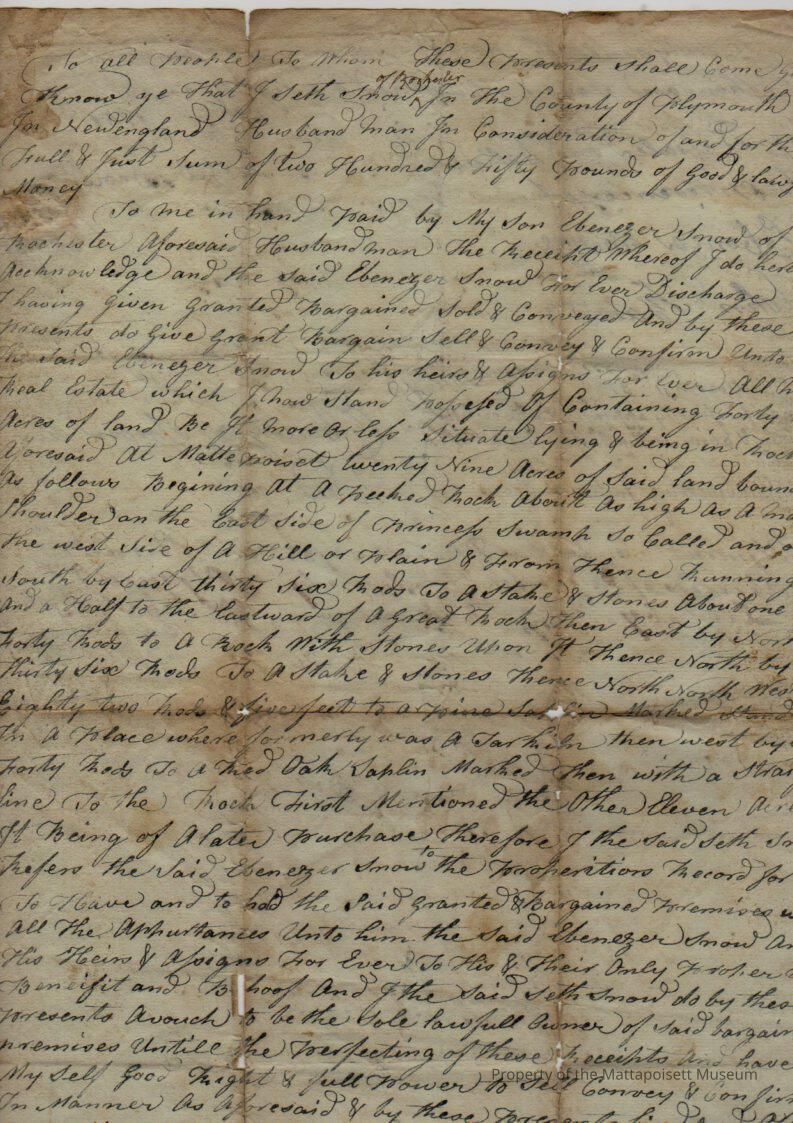 To all People To Whom These Presents shall Come
Know ye That I Seth Snow of Rochester In The County of Plymouth
In Newengland Husband man In Consideration of and for th
Full & Just Sum of two Hundred & Fifty Pounds of Good & lawf
Money
To me in hand Paid by My Son Ebenezer Snow of
Rochester Aforesaid Husbandman The Receipt Whereof I do here
Acknowledge and the said Ebenezer Snow For Ever Discharge
I having Given Granted Bargained Sold & Conveyed And by these
Presents do Give Grant Bargain Sell & Convey & Confirm Unto
the Said Ebenezer Snow To his heirs & Assigns For Ever All
Real Estate which I now Stand Possesed Of Containing Forty
Acres of land Be It more Or less Situate lying & being in Roch
Aforesaid At Mattepoiset twenty Nine Acres of Said land boun
As follows Begining At A Pecked Rock About As high As A ma
Shoulder on the East Side of Princess Swamp So Called and
the west Side of A Hill or Plain & From Thence Running
South by East thirty Six Rods To A Stake & Stones About one
and a Half to the Eastward of A Great Rock then East by Nort
Forty Rods to A Rock With Stones Upon It Thence North by
thirty Six Rods To A Stake & Stones thence North North West
Eighty two Rods & five feet to a Pine Saplin Marked Stand
In A Place where formerly was A Tarkiln then west by
Forty Rods To A Red Oak Saplin Marked Then with a Strai
line To the Rock First Mentioned the Other Eleven Acre
It Being of A later Purchase Therefore I the Said Seth Sn
Refers the Said Ebenezer Snow to the Properitiors Record for
To Have and to hold the Said Granted & Bargained Premises w
All The Appurtances Unto him the Said Ebenezer Snow An
His Heirs & Assigns For Ever To His & Their Only Proper
Beneifit and Behoof And I the Said Seth Snow do by thes
Presents Avouch to be the Sole lawfull Owner of Said bargain
Premises Untill the Perfecting of these Receipts and have
My Self Good Right & full Power to Sell Convey & Confirm
In Manner As Aforesaid & by these
Property of the Mattapoisett Museum